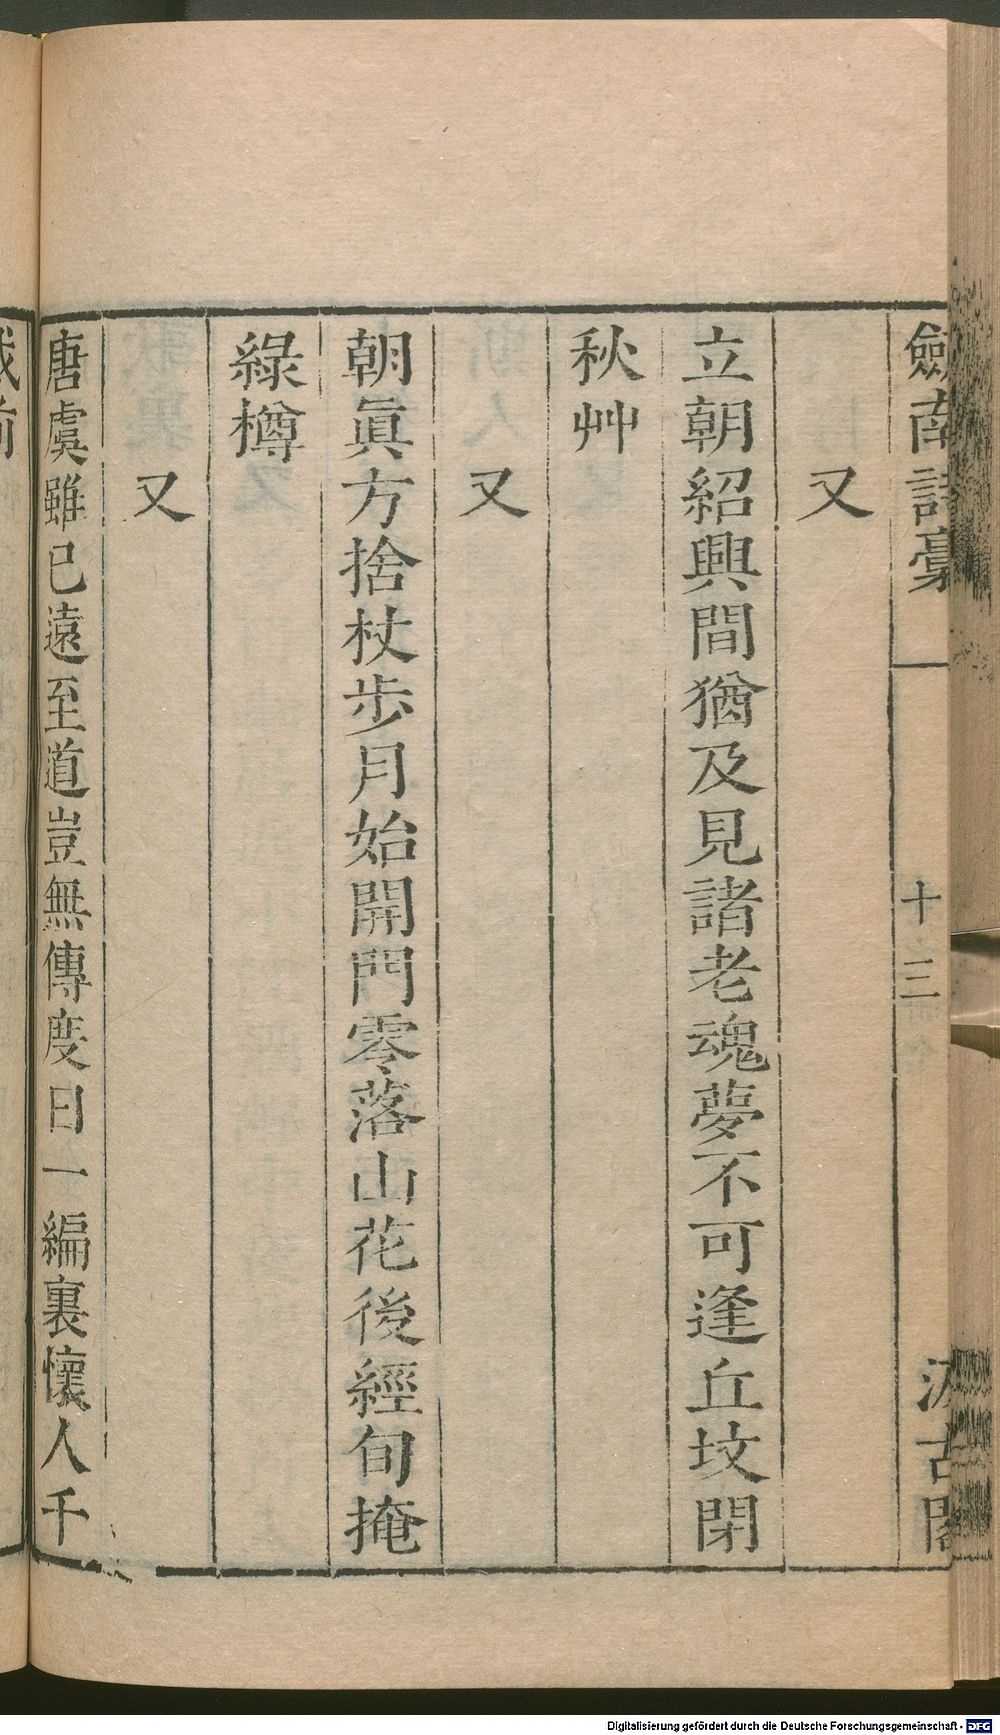 劒南詩稾
十三
汲古閣
又
立朝紹興間猶及見諸老魂夢不可逢丘坟閉
秋艸
又
朝眞方捨杖步月始開門零落山花後經旬掩
綠樽
又
唐虞雖已遠至道豈無傳度日一編裏懷人千
前
Digitalisierung gefördert durch die Deutsche Forschungsgemeinschaft - DFG